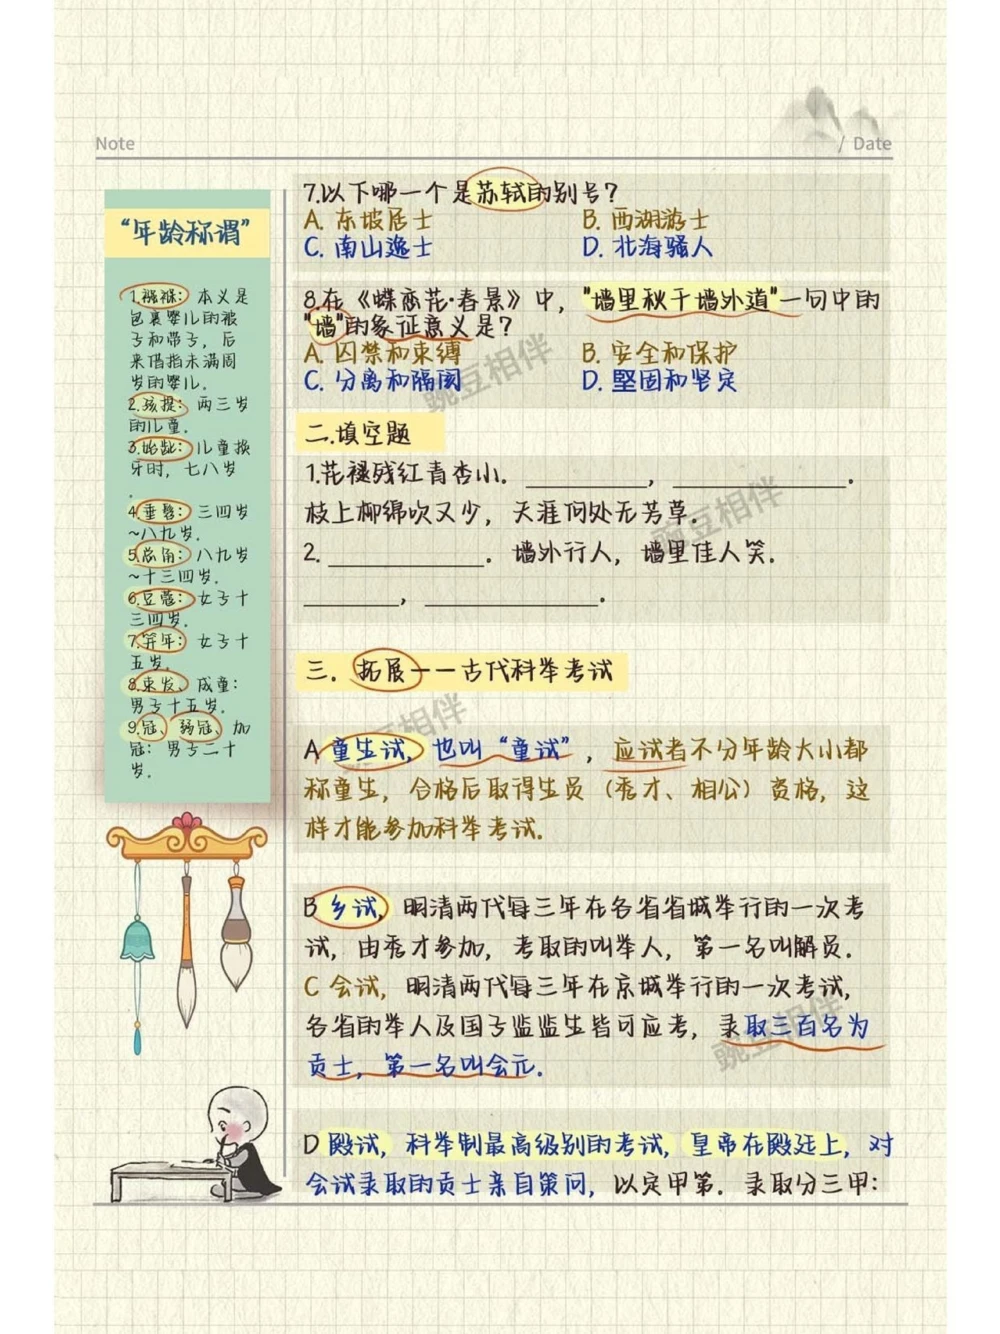 Note
/ Date
“年龄称谓”
1.襁褓：本义是
包裹婴儿的被
子和带子，后
来借指未满周
岁的婴儿。
2.孩提：两三岁
的儿童。
3.始龀：儿童换
牙时，七八岁
。
4.垂髫：三四岁
~八九岁。
5.总角：八九岁
~十三四岁。
6.豆蔻：女子十
三四岁。
7.笄年：女子十
五岁。
8.束发、成童：
男子十五岁。
9.冠、弱冠、加
冠：男子二十
岁。
7.以下哪一个是苏轼的别号？
A. 东坡居士 B. 西湖游士
C. 南山逸士 D. 北海骚人
8.在《蝶恋花·春景》中，"墙里秋千墙外道"一句中的
"墙"的象征意义是？
A. 囚禁和束缚 B. 安全和保护
C. 分离和隔阂 D. 坚固和坚定
二.填空题
1.花褪残红青杏小。__________，______________。
枝上柳绵吹又少，天涯何处无芳草。
2.____________。墙外行人，墙里佳人笑。
________，______________。
三．拓展——古代科举考试
A 童生试，也叫“童试”，应试者不分年龄大小都
称童生，合格后取得生员（秀才、相公）资格，这
样才能参加科举考试。
B 乡试，明清两代每三年在各省省城举行的一次考
试，由秀才参加，考取的叫举人，第一名叫解员。
C 会试，明清两代每三年在京城举行的一次考试，
各省的举人及国子监监生皆可应考，录取三百名为
贡士，第一名叫会元。
D 殿试，科举制最高级别的考试，皇帝在殿廷上，对
会试录取的贡士亲自策问，以定甲第。录取分三甲：
豌豆相伴
豌豆相伴
豌豆相伴
豌豆相伴